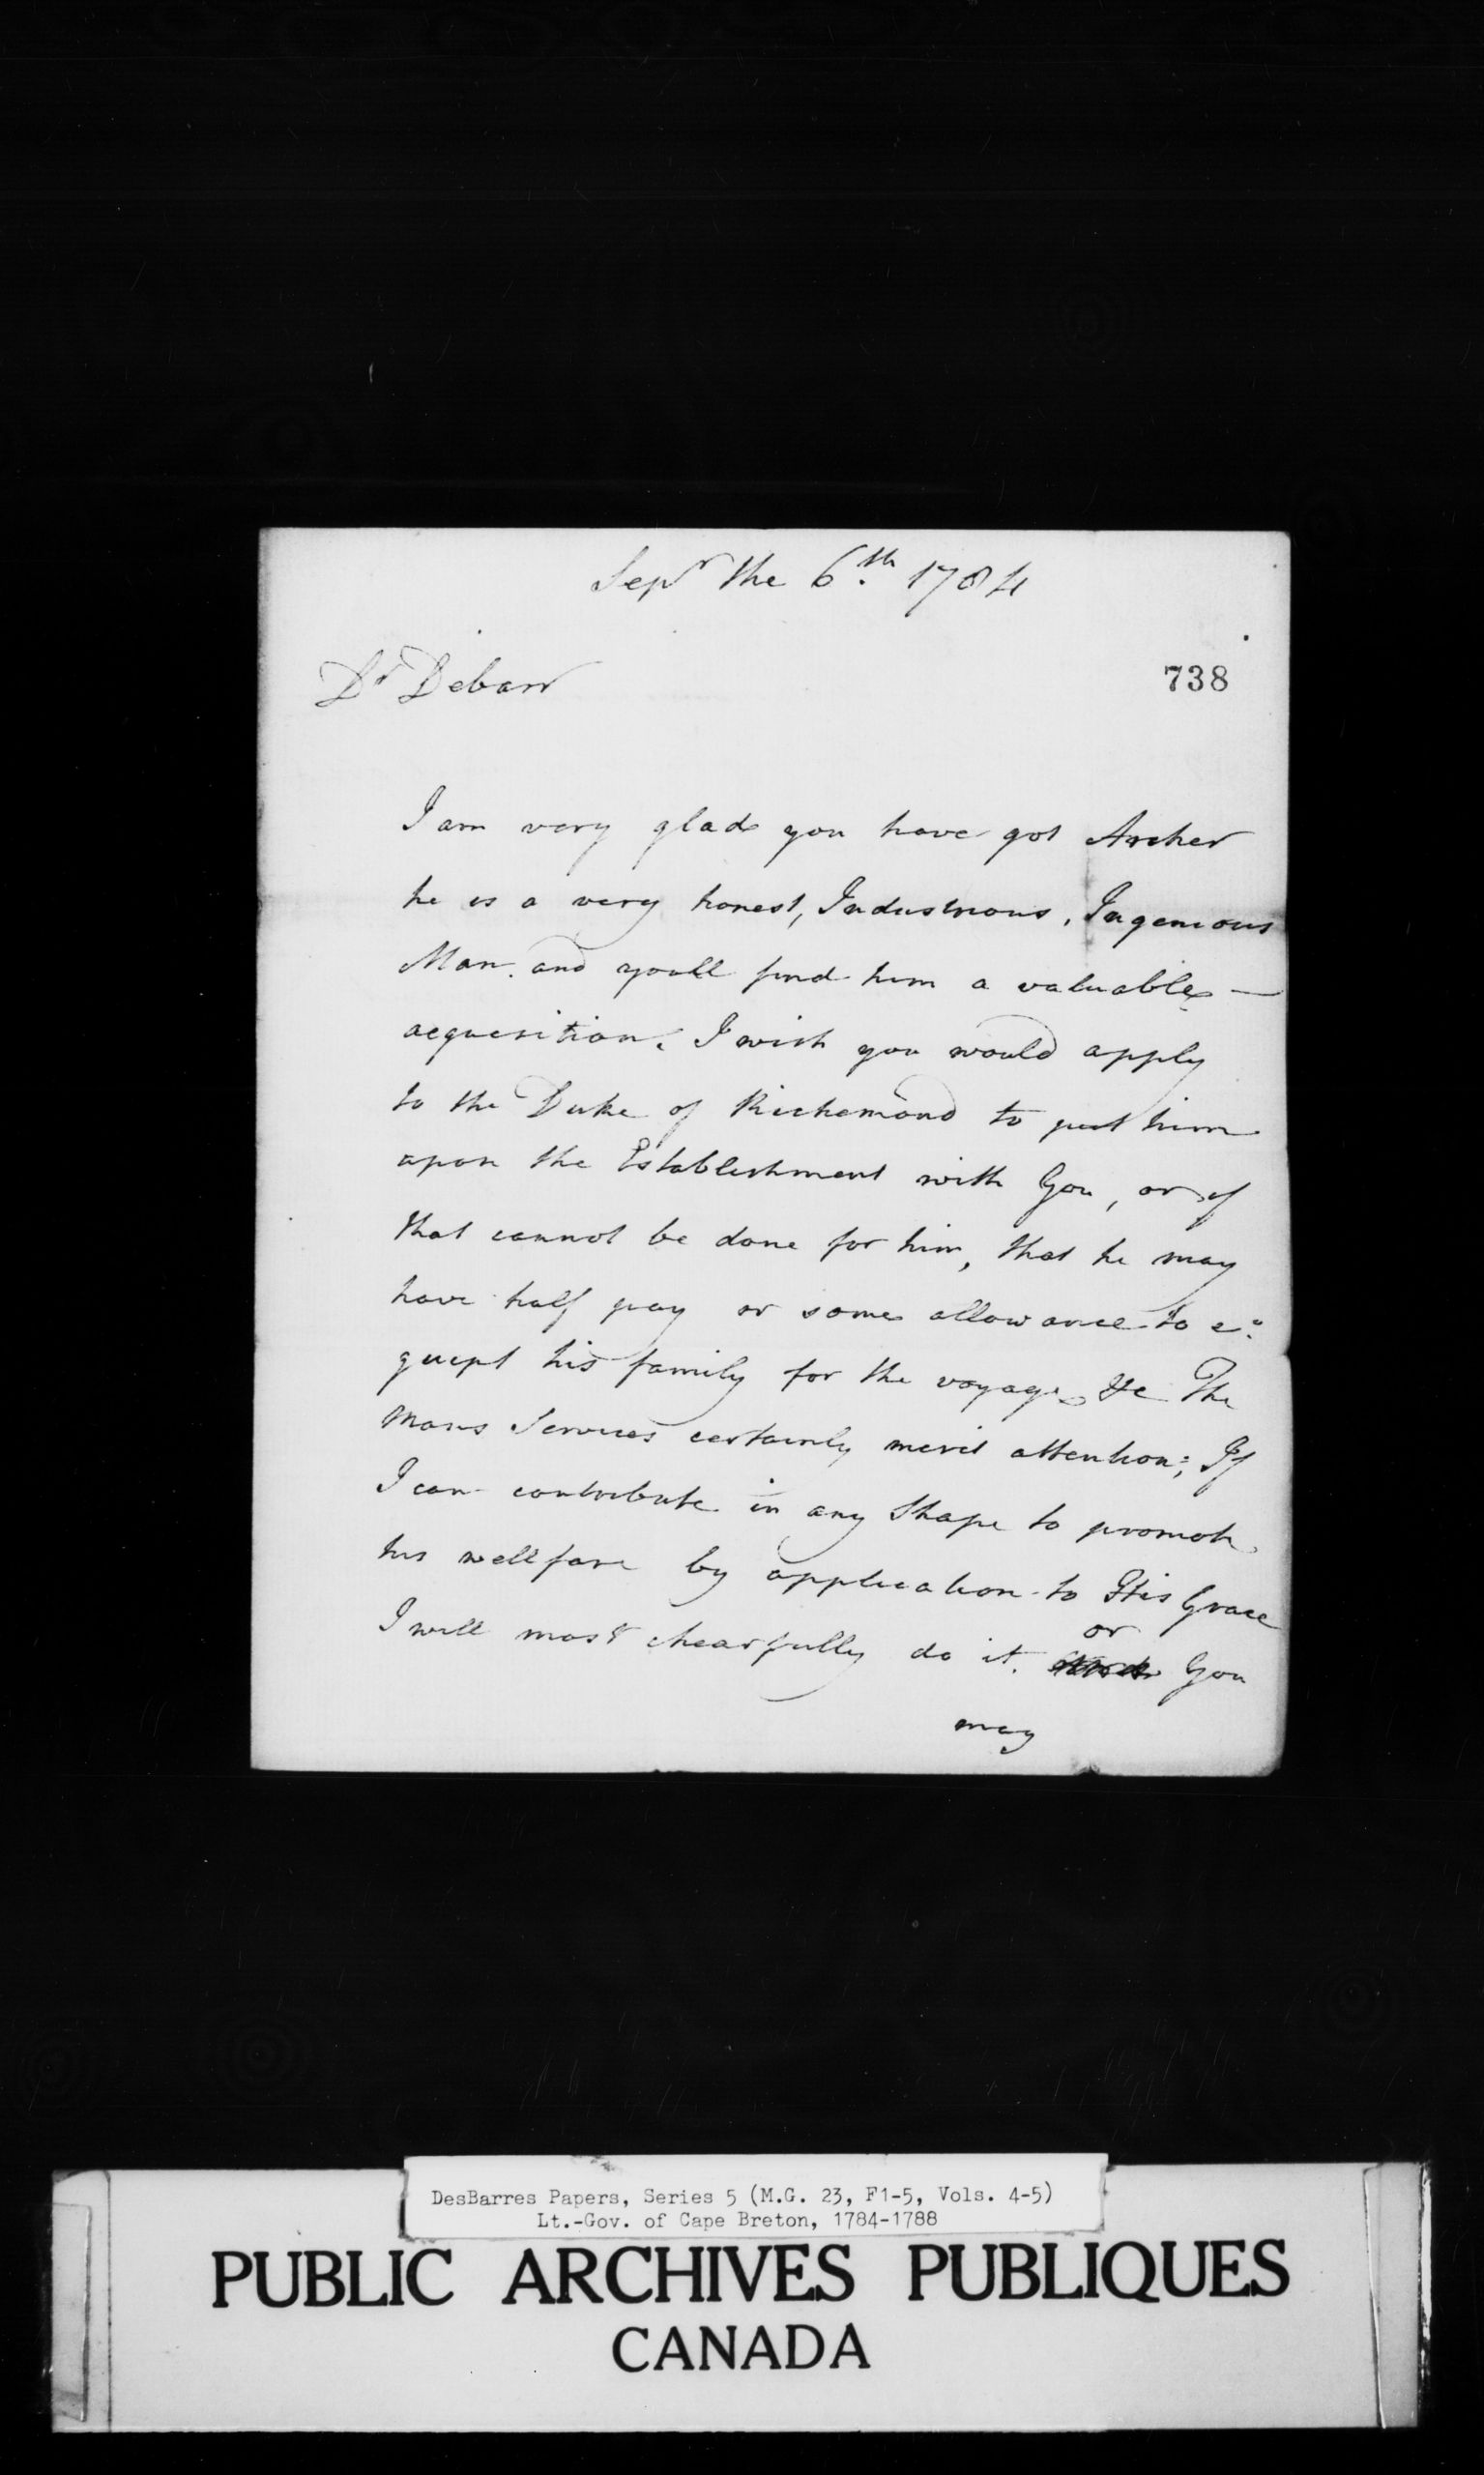 Sepr the 6th. 1784
Dr Debarr
738
I am very glad you have got Archer
he is a very honest, Industrious, Ingenious
Man. and youll find him a valuable —
acquesition. I wish you would apply
to the Duke of Richemond to put him
upon the Establishment with You, or if
that cannot be done for him, that he may
have half pay or some allowance to e:
quipt his family for the voyage &c The
Mans Services certainly merit attention; If
I can contribute in any Shape to promote
his wellfare by application to His Grace
or
I will most chearfully do it. You
may
DesBarres Papers, Series 5 (M.G. 23, F1-5, Vols. 4-5)
Lt.-Gov. of Cape Breton, 1784-1788
PUBLIC ARCHIVES PUBLIQUES
CANADA